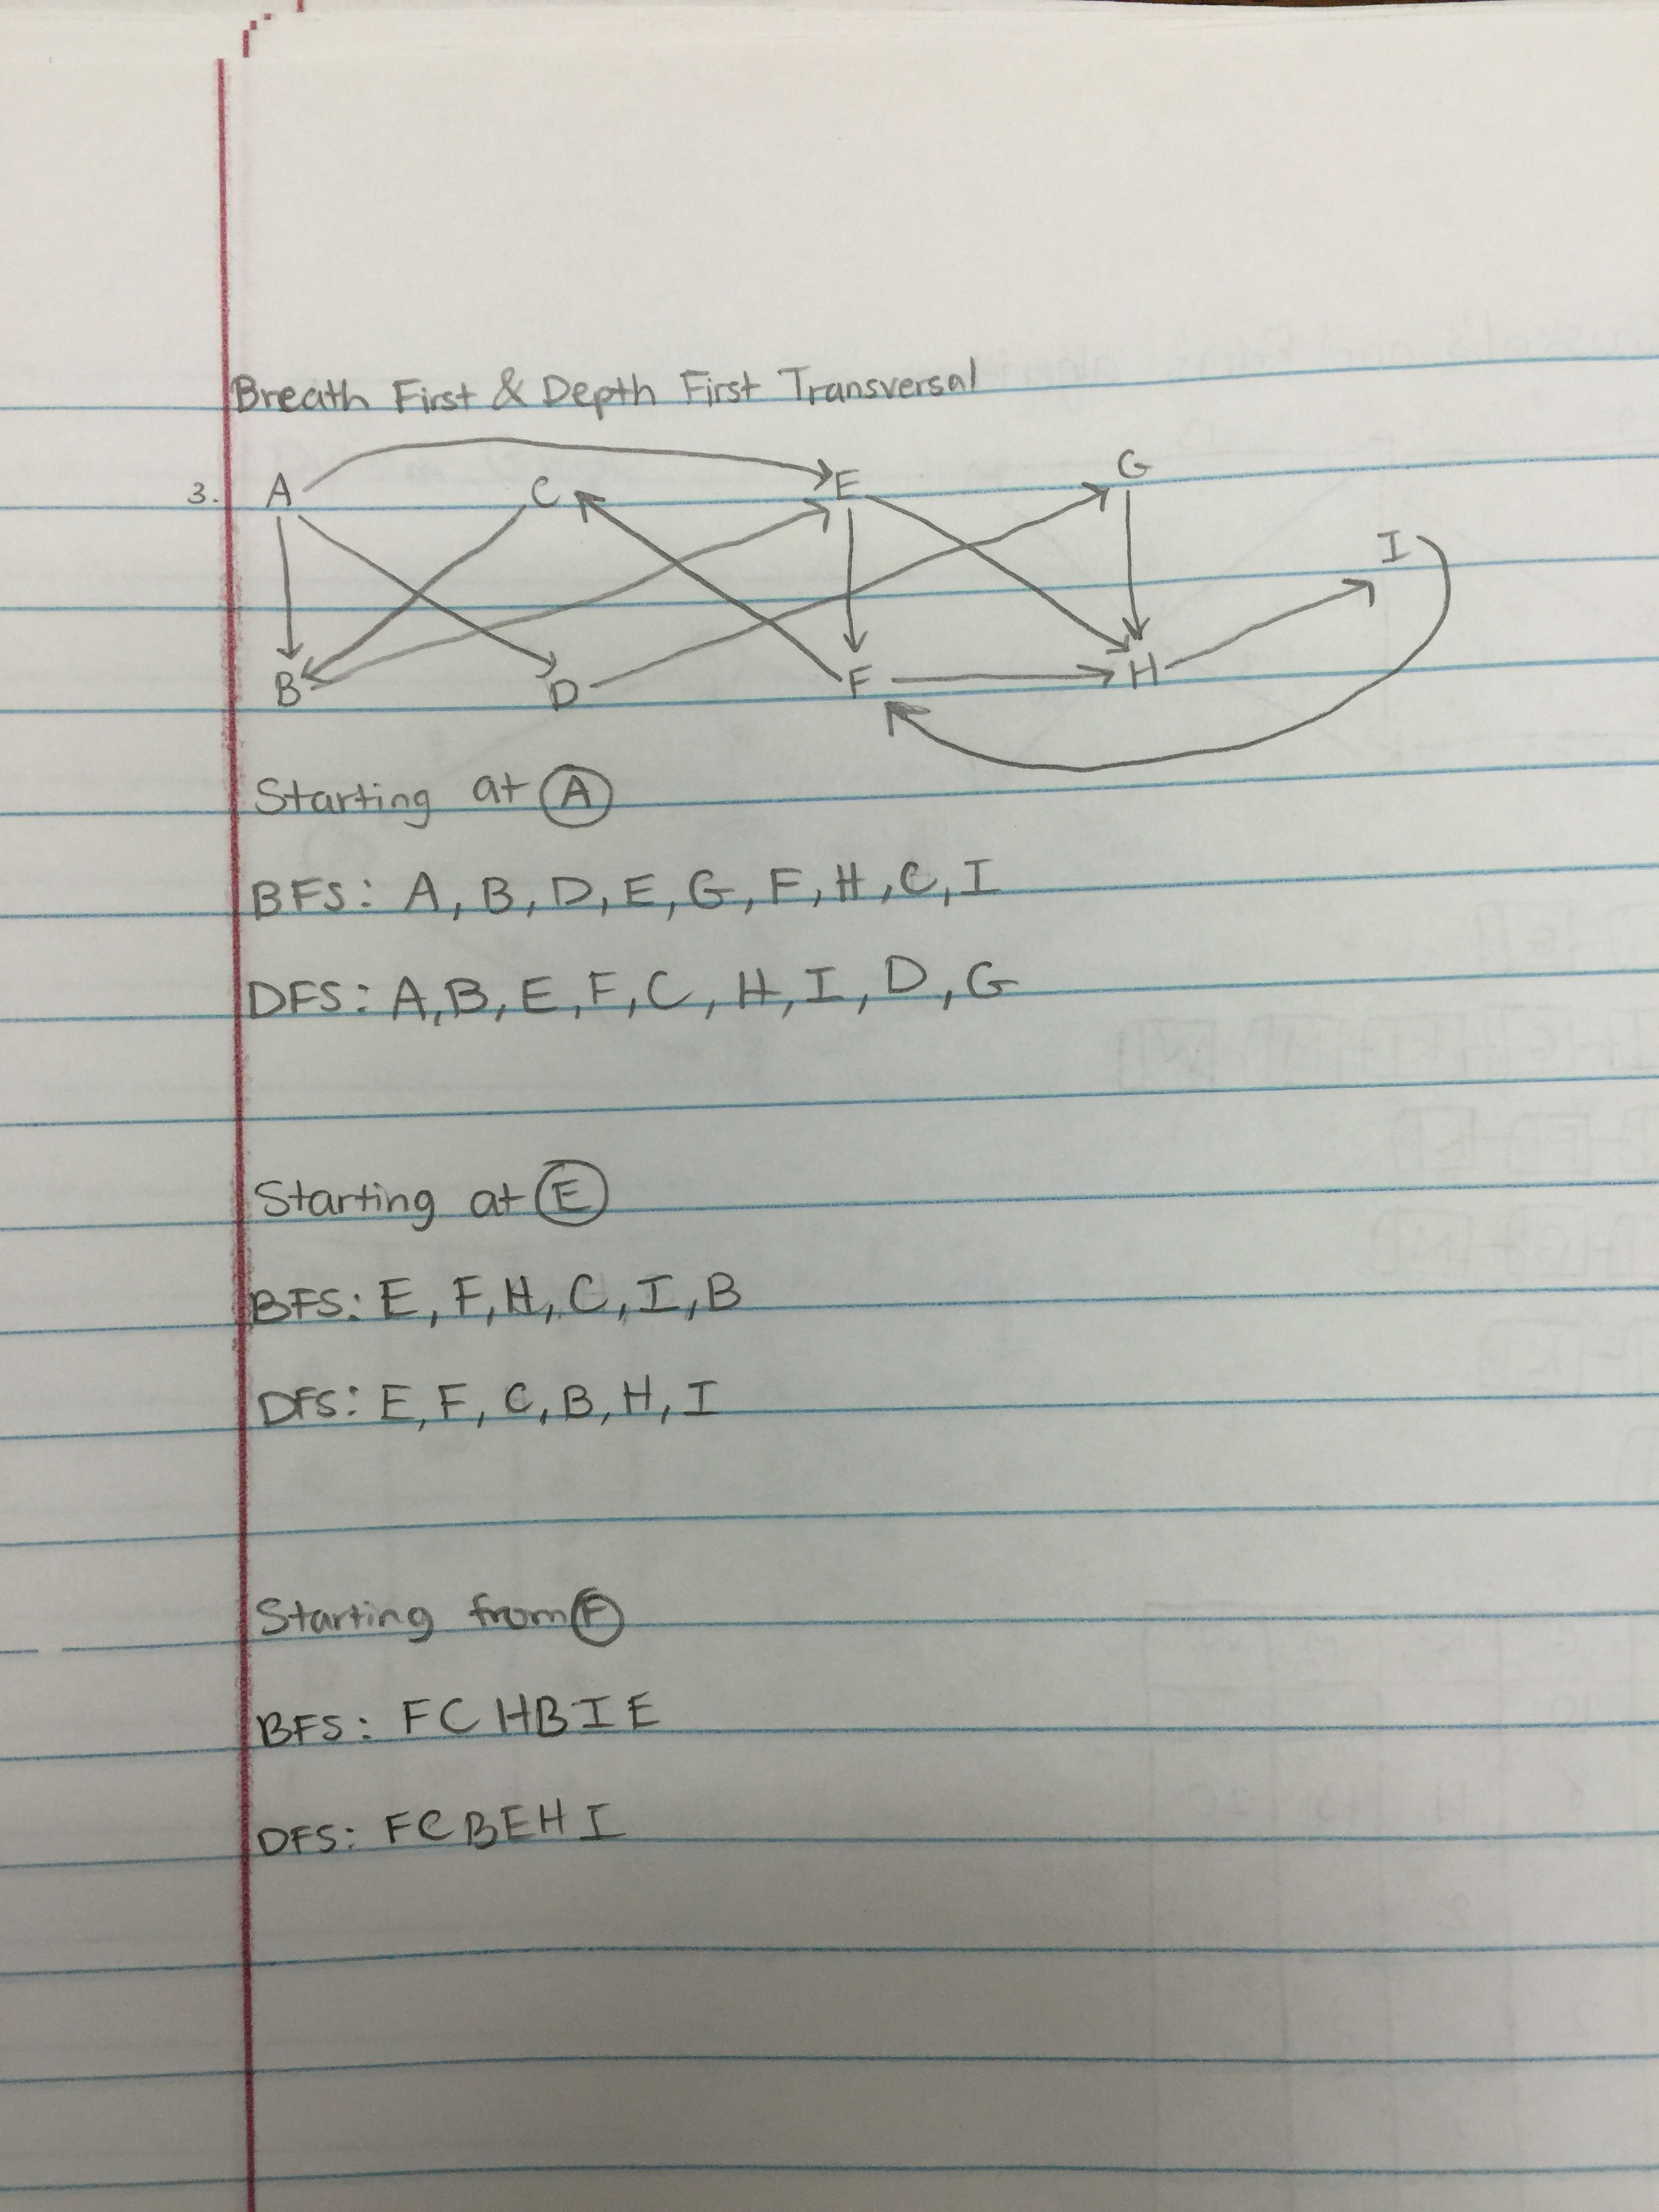 Breath First & Depth First Transversal
3. A C E G
I
B D F H
Starting at A
BFS: A, B, D, E, G, F, H, C, I
DFS: A, B, E, F, C, H, I, D, G
Starting at E
BFS: E, F, H, C, I, B
DFS: E, F, C, B, H, I
Starting from F
BFS: F C H B I E
DFS: F C B E H I